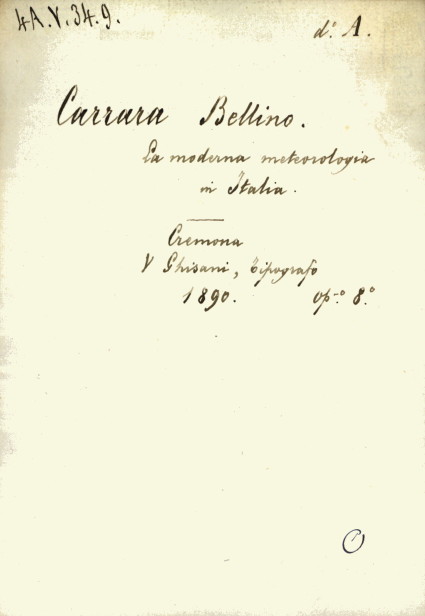 4A.V.34.9.
d.° A.
Carrara Bellino.
La moderna meteorologia
in Italia.
Cremona
V Ghisani, tipografo
1890. op.° 8.°